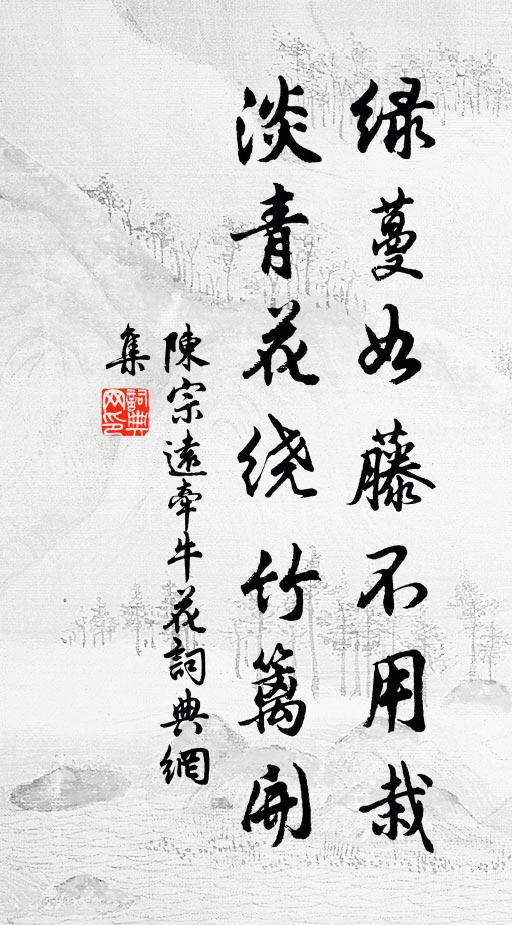 绿蔓如藤不用栽
淡青花绕竹篱开
陳宗遠牽牛花詞典網
集
詞典
网印